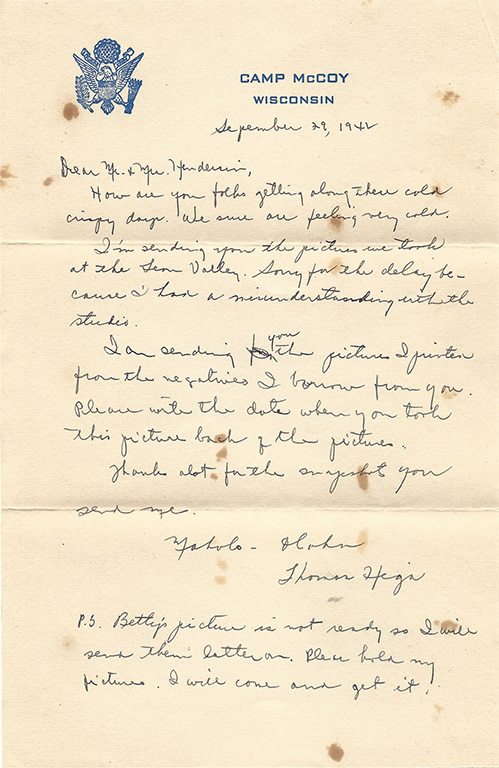 CAMP McCOY
WISCONSIN
Sepember 29, 1942
Dear Mr. & Mrs. Henderson,
How are you folks getting along these cold
crispy days. We sure are feeling very cold.
I'm sending you the pictures we took
at the Leon Valley. Sorry for the delay be-
cause I had a misunderstanding with the
studio.
I am sending you the pictures I printed
from the negatives I borrow from you.
Please write the date when you took
this picture back of the pictures.
Thanks alot for the snapshot you
send me.
Mahalo - Aloha
Thomas Higa
P.S. Betty's picture is not ready so I will
send them latter on. Please hold my
pictures. I will come and get it.